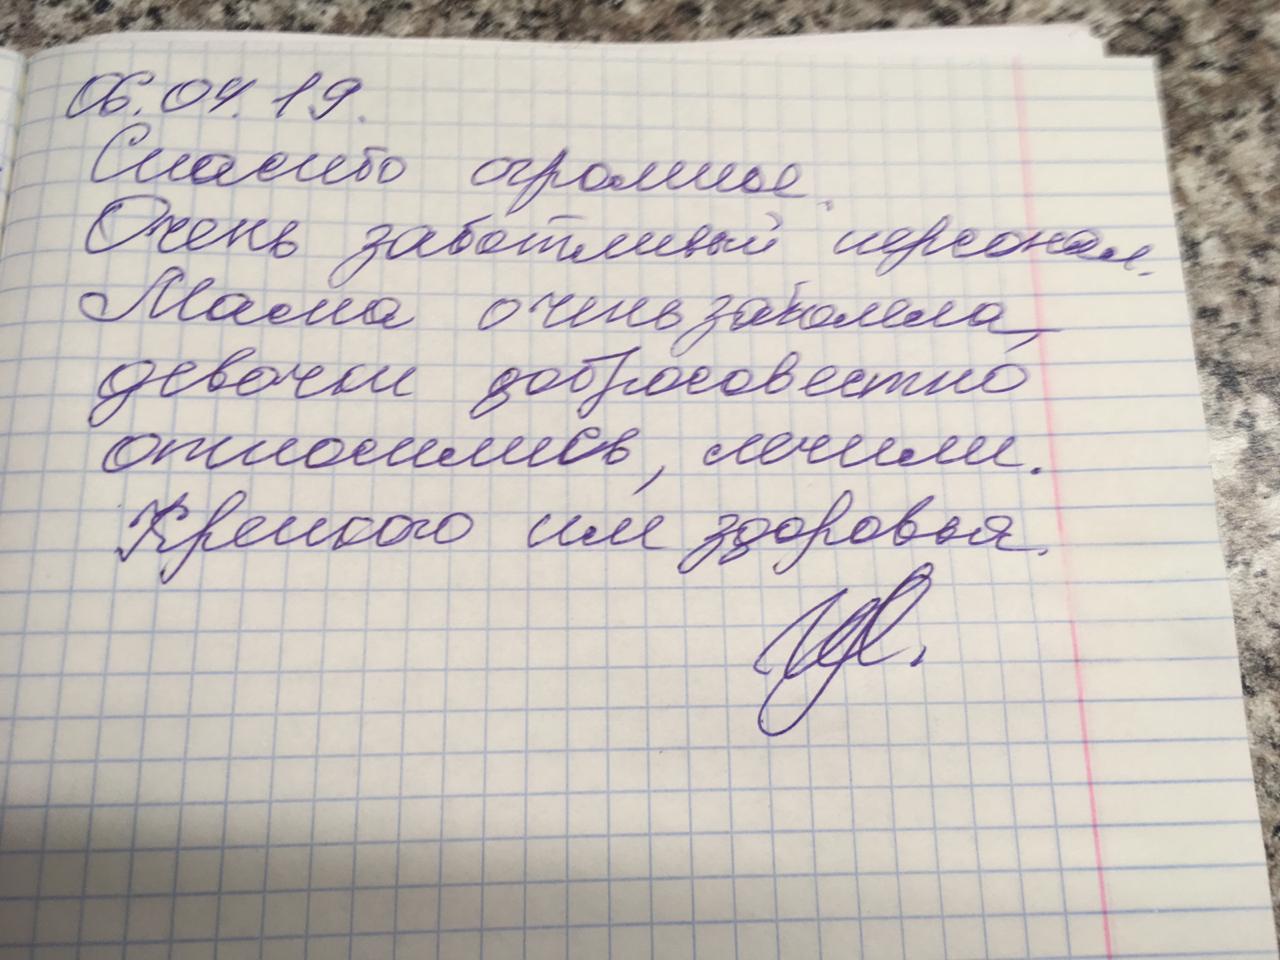 06.04.19.
Спасибо огромное.
Очень заботливый персонал.
Мама очень заболела,
девочки добросовестно
относились, лечили.
Крепкого им здоровья.